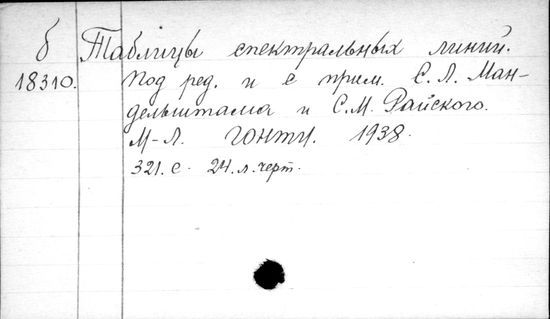 б Таблицы спектральных линий.
18310. Под ред. и с прим. С. Л. Ман-
дельштама и С. М. Райского.
М-Л. ГОНТИ. 1938.
321. с. 24. л. черт.